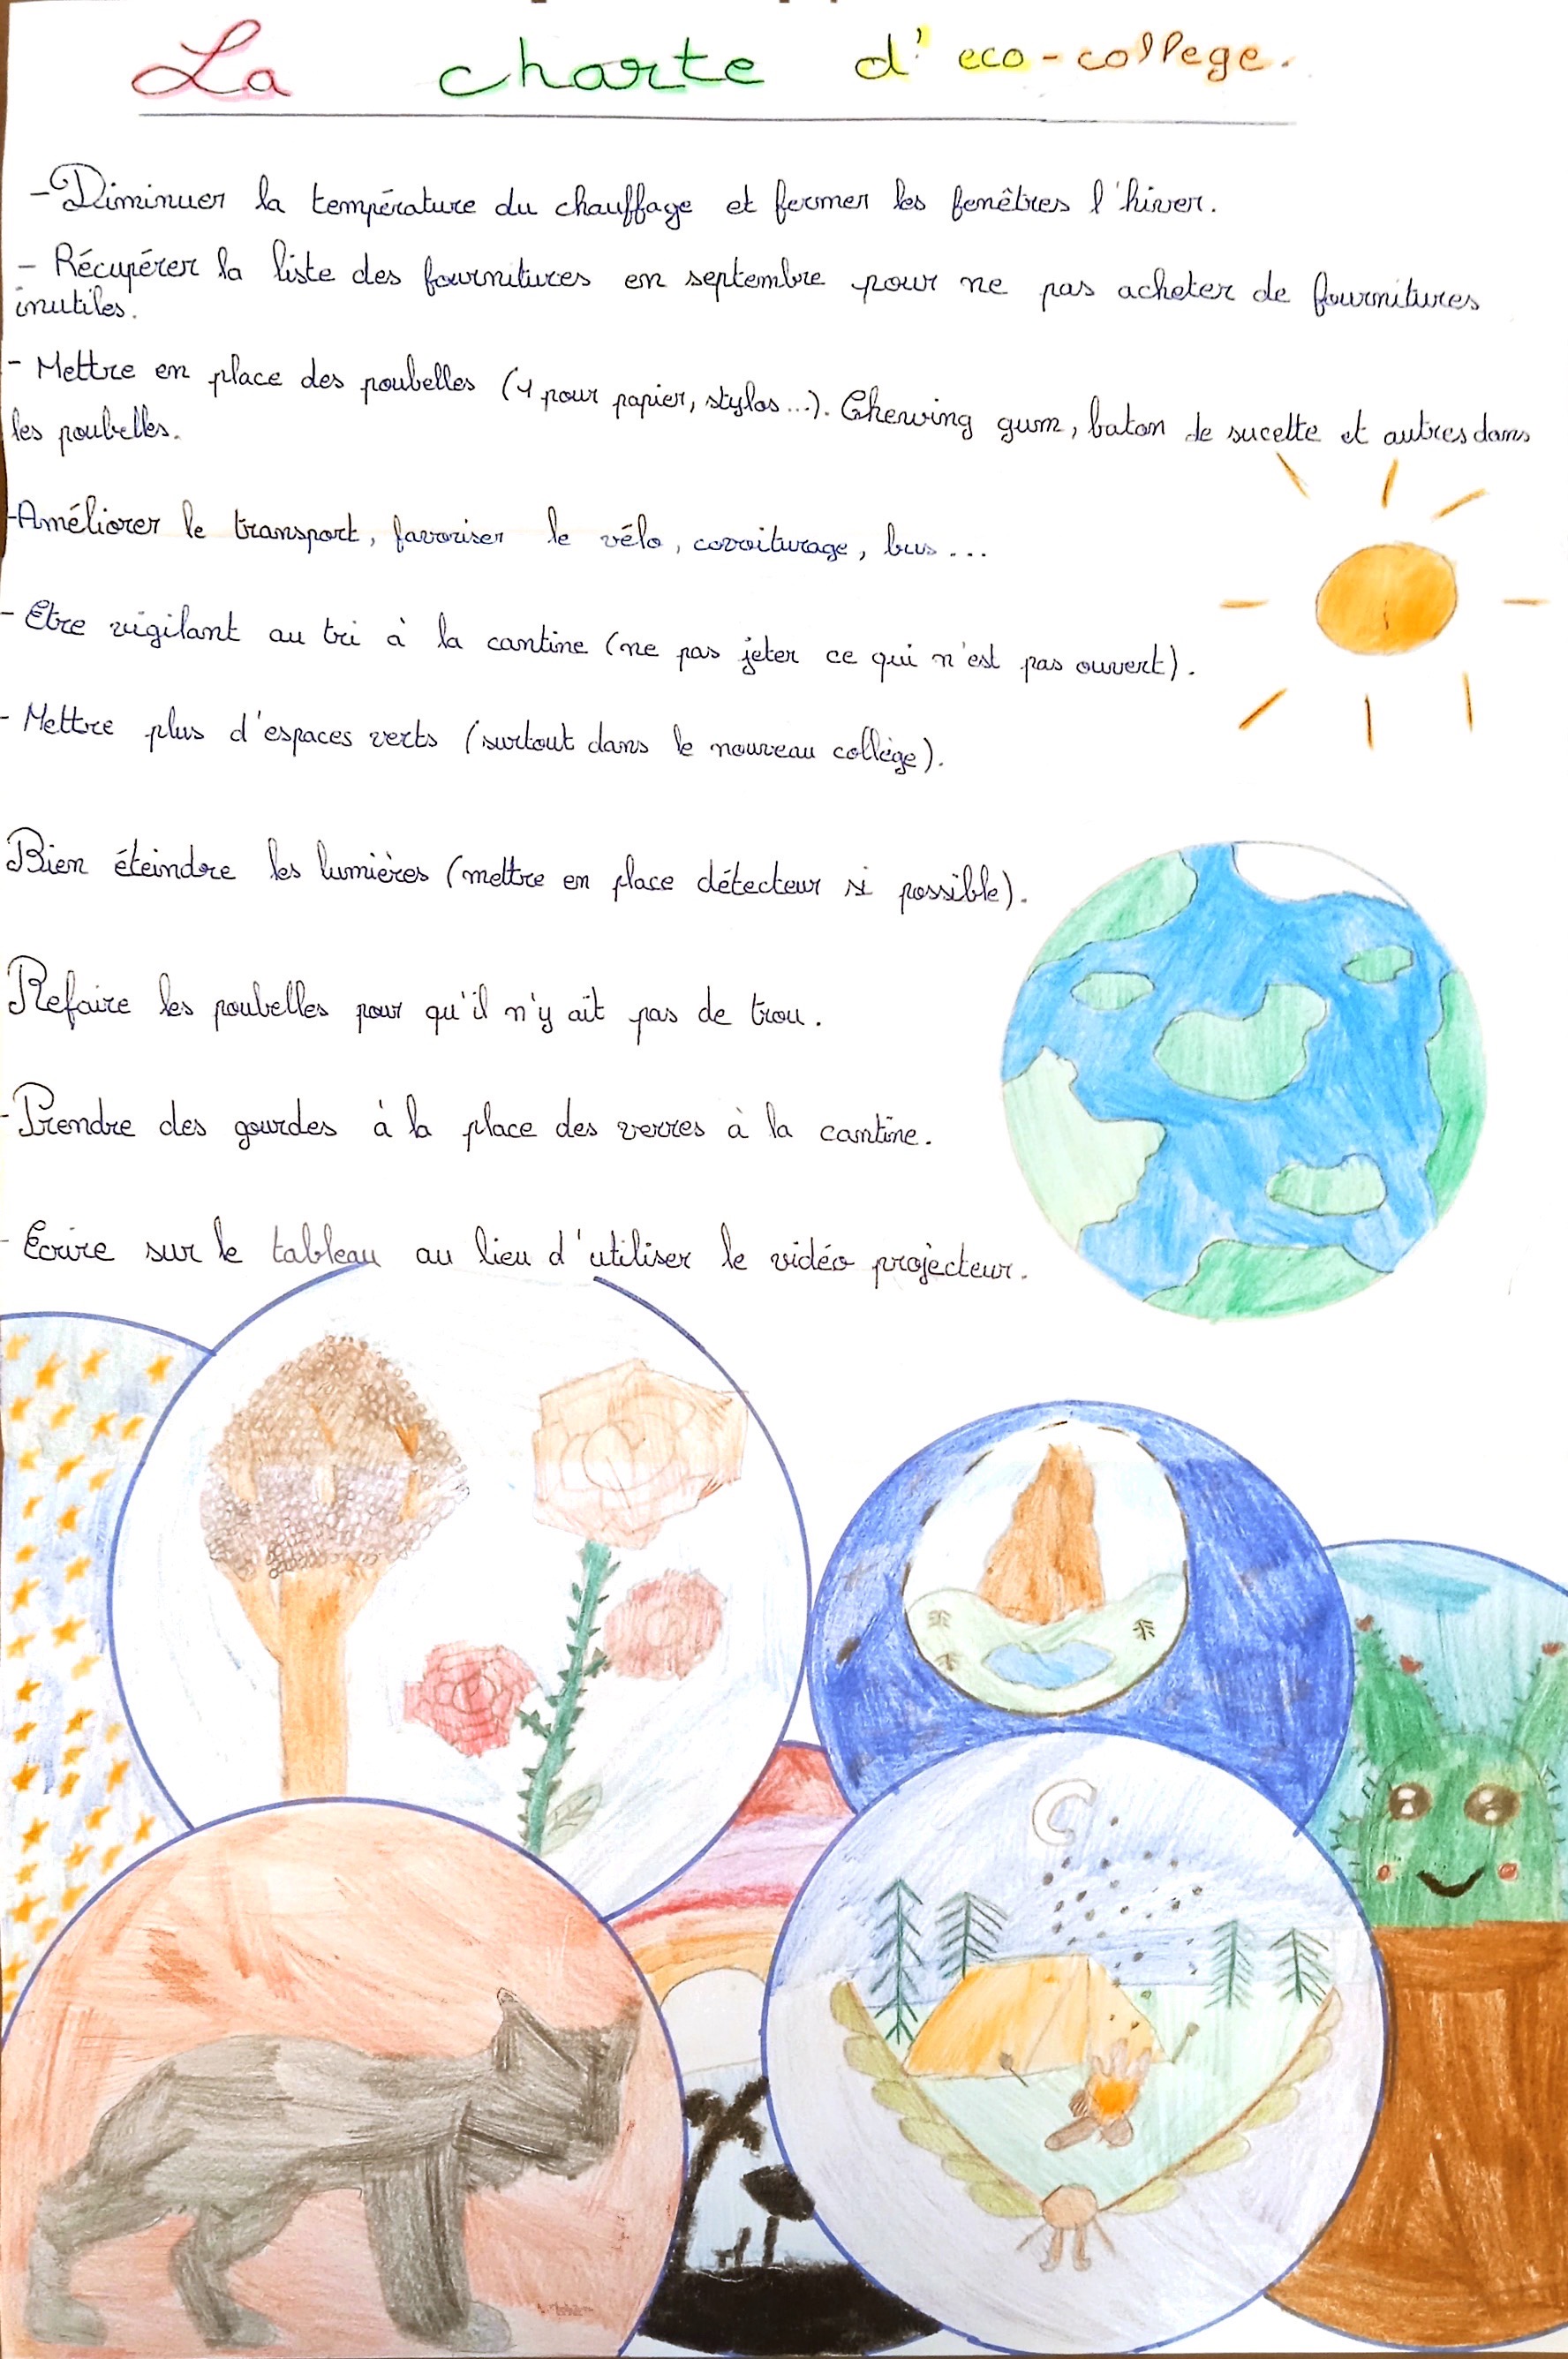 La charte d'eco-college.
- Diminuer la température du chauffage et fermer les fenêtres l'hiver.
- Récupérer la liste des fournitures en septembre pour ne pas acheter de fournitures
inutiles.
- Mettre en place des poubelles (1 pour papier, stylos...). Chewing gum, baton de sucette et autres dans
les poubelles.
-Améliorer le transport, favoriser le vélo, covoiturage, bus...
- Etre vigilant au tri à la cantine (ne pas jeter ce qui n'est pas ouvert).
- Mettre plus d'espaces verts (surtout dans le nouveau collège).
Bien éteindre les lumières (mettre en place détecteur si possible).
Refaire les poubelles pour qu'il n'y ait pas de trou.
-Prendre des gourdes à la place des verres à la cantine.
- Ecrire sur le tableau au lieu d'utiliser le vidéo projècteur.